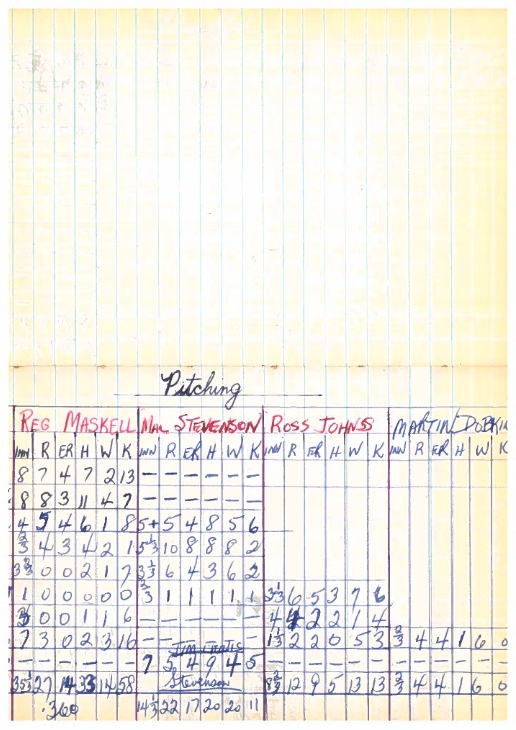 Pitching
REG MASKELL MAL STEVENSON ROSS JOHNSS MARTIN DOBKIN
INN R ER H W K INN R ER H W K INN R ER H W K INN R ER H W K
8 7 4 7 2 13 — — — — — —
8 8 3 11 4 7 — — — — — —
4 5 4 6 1 8 5+ 5 4 8 5 6
4 3 4 2 1 5⅓ 10 8 8 8 2
3⅔ 0 0 2 1 7 3⅓ 6 4 3 6 2
1 0 0 0 0 0 ⅔ 1 1 1 1 1 3⅓ 6 5 3 7 6
0 0 1 1 6 — — — — — — 4 4 2 2 1 4
7 3 0 2 3 16 1⅓ 2 2 0 5 3 ⅔ 4 4 1 6 0
— — — — — — 7 5 4 9 4 5 — — — — — — — — — — — —
Stevenson
35⅓ 27 14 33 14 58 8⅔ 12 9 5 13 13 ⅔ 4 4 1 6 0
.360 14⅓ 22 17 20 20 11